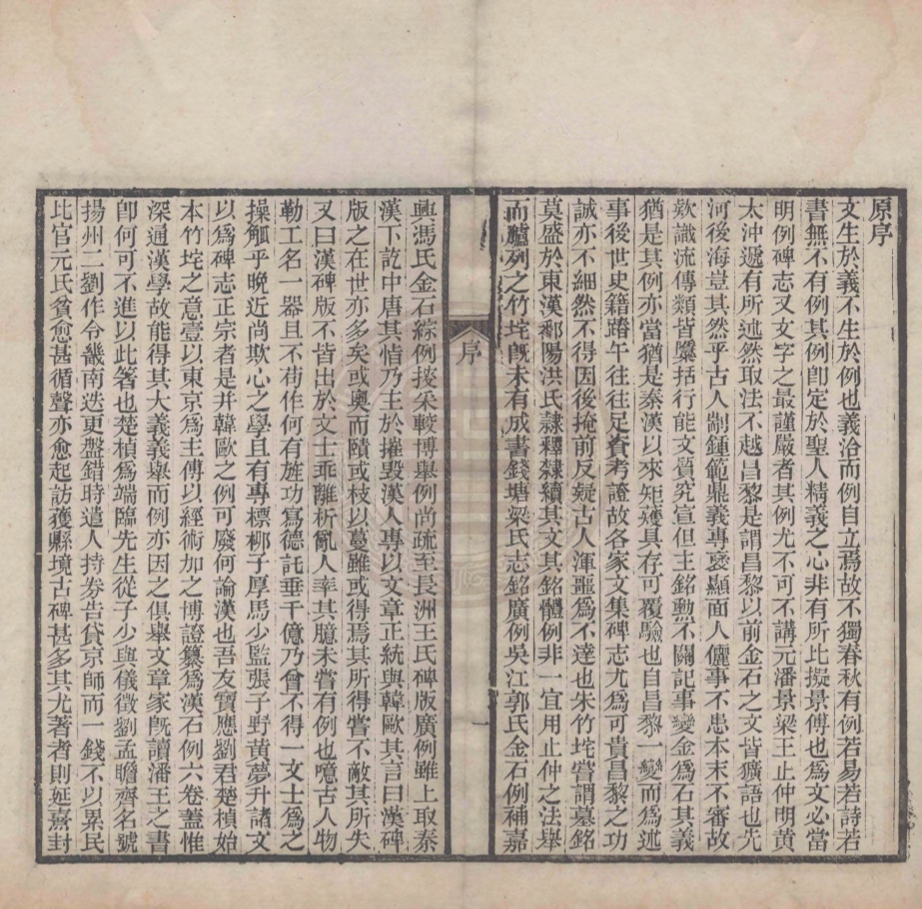 原序
文生於義不生於例也義洽而例自立焉故不獨春秋有例若易若詩若
書無不有例其例卽定於聖人精義之心非有所比擬景傅也爲文必當
明例碑志又文字之最謹嚴者其例尤不可不講元潘景梁王止仲明黄
太沖遞有所述然取法不越昌黎是謂昌黎以前金石之文皆獷語也先
河後海豈其然乎古人剬鍾範鼎義專襃顯面人儷事不患本末不審故
欵識流傳類皆檃括行能文質究宣但主銘勲不關記事變金爲石其義
猶是其例亦當猶是秦漢以來矩矱具存可覆驗也自昌黎一變而爲述
事後世史籍踳午往往足資考證故各家文集碑志尤爲可貴昌黎之功
誠亦不細然不得因後掩前反疑古人渾噩爲不達也朱竹垞嘗謂墓銘
莫盛於東漢鄱陽洪氏隸釋隸續其文其銘體例非一宜用止仲之法舉
而臚列之竹垞旣未有成書錢塘梁氏志銘廣例吳江郭氏金石例補嘉
序
一
興馮氏金石綜例掞采較博舉例尚疏至長洲王氏碑版廣例雖上取秦
漢下訖中唐其情乃主於摧毀漢人專以文章正統與韓歐其言曰漢碑
版之在世亦多矣或奧而賾或枝以蔓雖或得焉其所得嘗不敵其所失
又曰漢碑版不皆出於文士乖離析亂人率其臆未嘗有例也噫古人物
勒工名一器且不苟作何有旌功寫德託垂千億乃曾不得一文士爲之
操觚乎晚近尚欺心之學且有專標柳子厚馬少監張子野黄夢升諸文
以爲碑志正宗者是幷韓歐之例可廢何論漢也吾友寶應劉君楚楨始
本竹垞之意壹以東京爲主傅以經術加之博證纂爲漢石例六卷蓋惟
深通漢學故能得其大義義舉而例亦因之俱舉文章家旣讀潘王之書
卽何可不進以此箸也楚楨爲端臨先生從子少與儀徵劉孟瞻齊名號
揚州二劉作令畿南迭更盤錯時遣人持券告貸京師而一錢不以累民
比官元氏貧愈甚循聲亦愈起訪獲縣境古碑甚多其尤著者則延熹封